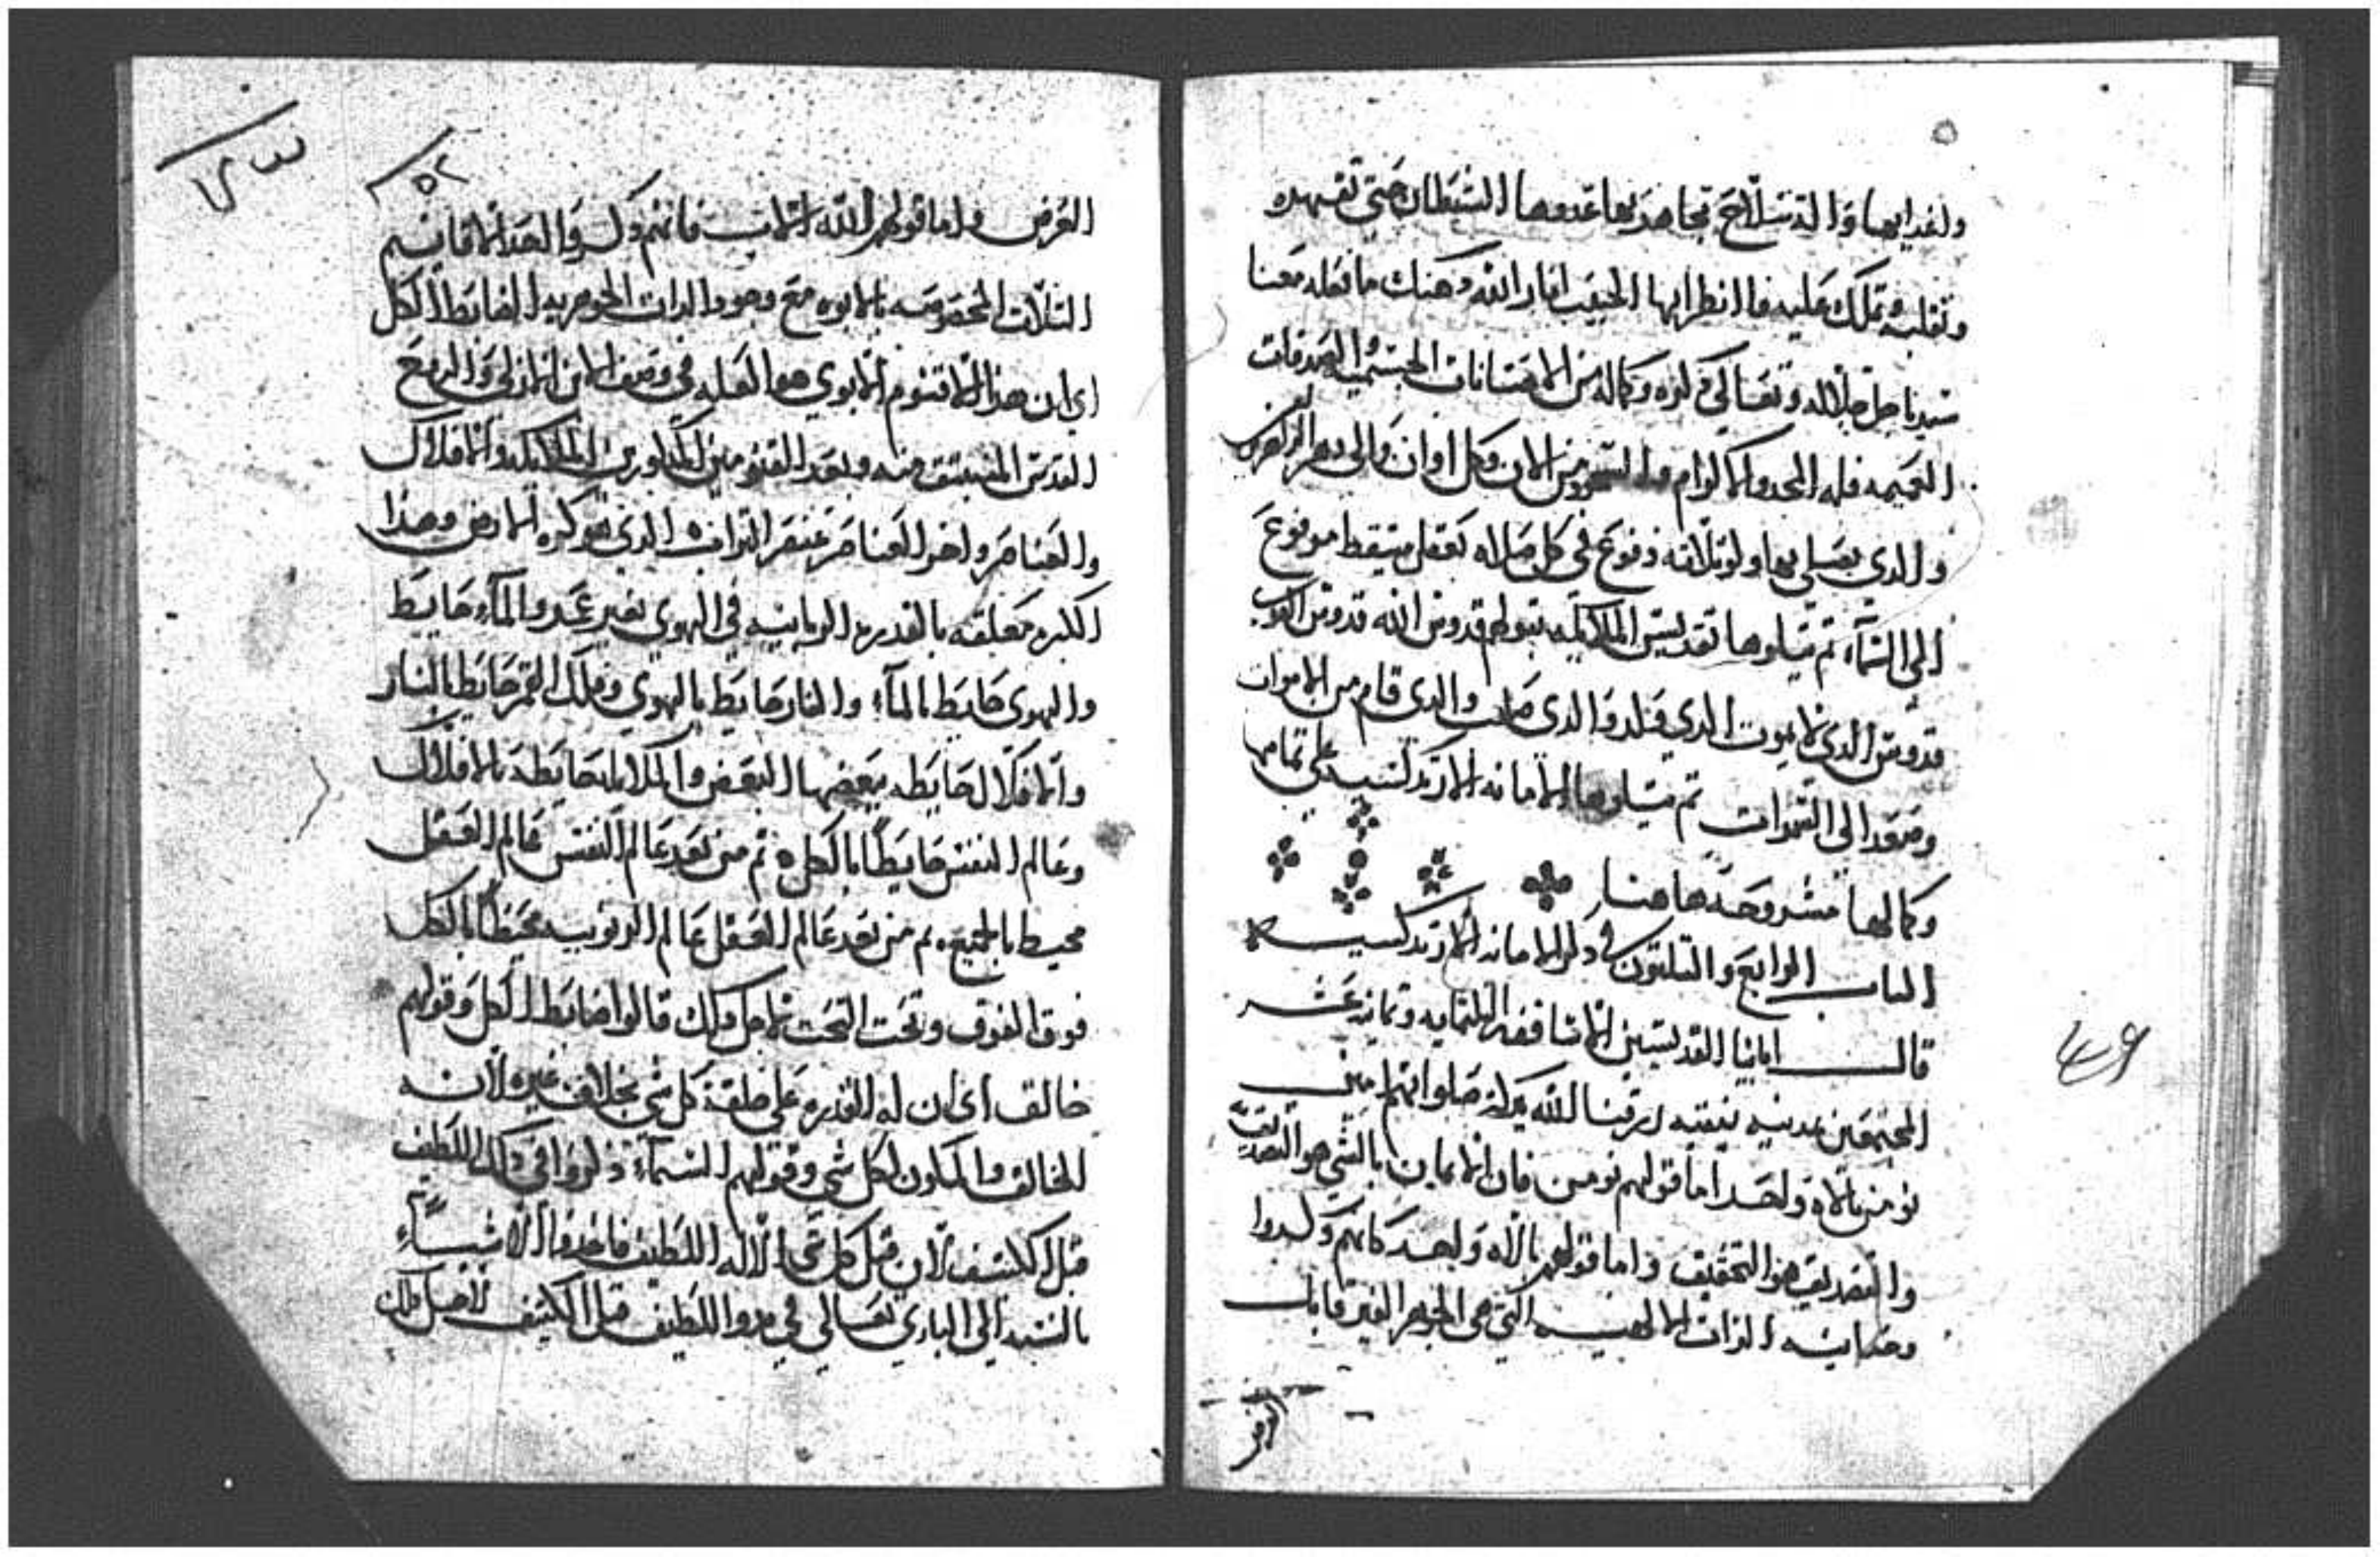 ولغدايها والدتسلاح تجاهد بها عدوها الشيطان حتي تقهره
وتغلبه وتملك عليه فاانظر ايها الحبيب افكار الله وهنك ما فعله معنا
سيدنا جل جلاله وتعالي ذكره وكماله من الاهتمانات الجسميه والصدقات
العميمه فله المجد والاكرام والسجود من الان وكل اوان والى دهر الداهرين
والدي يصلي بها ولوتلاته دفوع في كل صلاه بعقل متيقظ مرفوع
الى السماء تم يتلوها تقديس الملايكه بقولهم قدوس الله قدوس القوي
قدوس الدي لا يموت الدي ولد والدي صلب والدي قام من الاموات
وصعد الي السموات تم يتلوها الامانه الارتدكسيه علي تمامها
وكمالها مشروحه هاهنا
الباب الرابع والتلتون في دكر الامانه الارتدكسيه
قالت اباينا القديسين الاساقفه التلتمايه وتمانية عشر
المجتمعين بمدينه نيقيه رزقنا الله بركة صلواتهم امين
نومن بالاه واحد اما قولهم نومن فان الايمان بالشي هو التصديق
والتصديق هو التحقيق واما قولهم بالاه واحد فانهم وكدوا
وحدانية الذات الالهيه التي هي الجوهر الغير قابل
العرض
٥٢
العرض واما قولهم الله الاب فانهم دكروا احد الاقانيم
التلات المخصوصه بالابوه مع وجود الدات الجوهريه الضابط الكل
اي ان هدا الاقنوم الابوي هو العله في وصف الابن الازلي والروح
القدس المنبتق منه وبعد القنومين المدكورين الملايكه والافلاك
والعناصر واخر العناصر عنصر التراب الدي هو كرة الارض وهذا
الكره معلقه بالقدره الربانيه في الهوي بغير عمد والماء حايط
والهوى حايط بالماء والنار حايط بالهوي وفلك القمر حايط بالنار
والافلاك حايطه ببعضها البعض والملايكه حايطه بالافلاك
وعالم النفس حايطا بالكل تم من بعد عالم النفس عالم العقل
محيط بالجميع تم من بعد عالم العقل عالم الربوبيه محيطا بالكل
فوق الفوق وتحت التحت لاجل دلك قالوا ضابط الكل وقولهم
خالق اى ان له القدره على خلقة كل شي بخلاف غيره لانه
الخالق والمكون لكل شي وقولهم السماء دكروا في دلك اللطيف
قبل الكتيف لان قبل كل شي الاله اللطيف فاخدوا الاشياء
بالنسبه الي الباري تعالي في بدو اللطيف قبل الكتيف لاجل دلك